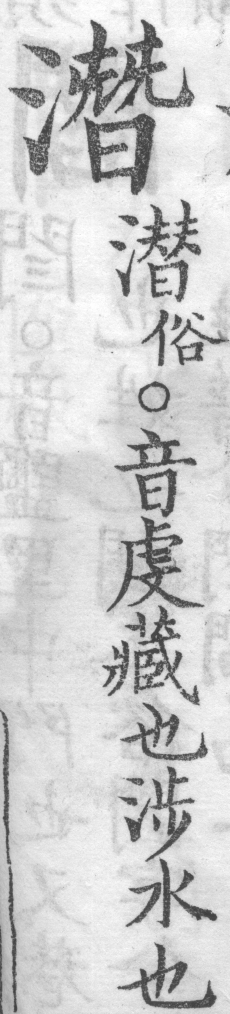 潛
潜俗○音虔藏也涉水也